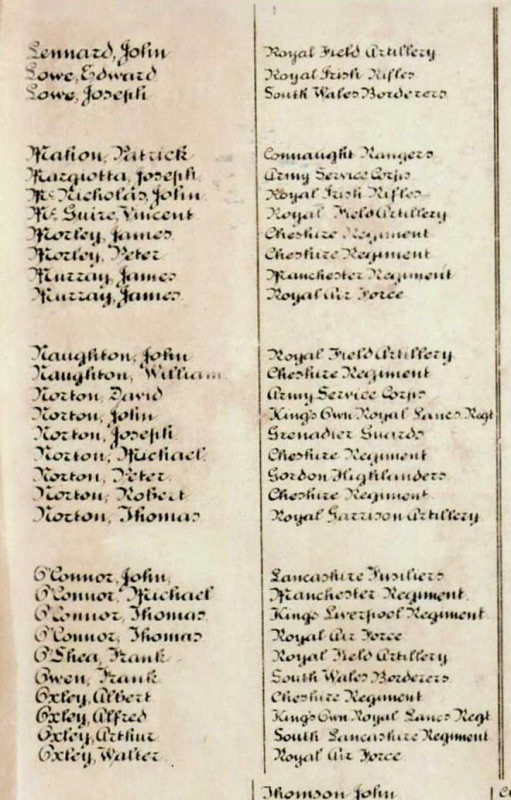 Lennard, John Royal Field Artillery
Lowe, Edward Royal Irish Rifles
Lowe, Joseph South Wales Borderers
Mahon, Patrick Connaught Rangers
Margiotta, Joseph Army Service Corps
McNicholas, John Royal Irish Rifles
Mc Guire, Vincent Royal Field Artillery
Morley, James Cheshire Regiment
Morley, Peter Cheshire Regiment
Murray, James Manchester Regiment
Murray, James Royal Air Force
Naughton, John Royal Field Artillery
Naughton, William Cheshire Regiment
Norton, David Army Service Corps
Norton, John King's Own Royal Lancs Regt
Norton, Joseph Grenadier Guards
Norton, Michael Cheshire Regiment
Norton, Peter Gordon Highlanders
Norton, Robert Cheshire Regiment
Norton, Thomas Royal Garrison Artillery
O'Connor, John Lancashire Fusiliers
O'Connor, Michael Manchester Regiment
O'Connor, Thomas King's Liverpool Regiment
O'Connor, Thomas Royal Air Force
O'Shea, Frank Royal Field Artillery
Owen, Frank South Wales Borderers
Oxley, Albert Cheshire Regiment
Oxley, Alfred King's Own Royal Lancs Regt
Oxley, Arthur South Lancashire Regiment
Oxley, Walter Royal Air Force
Thomson John